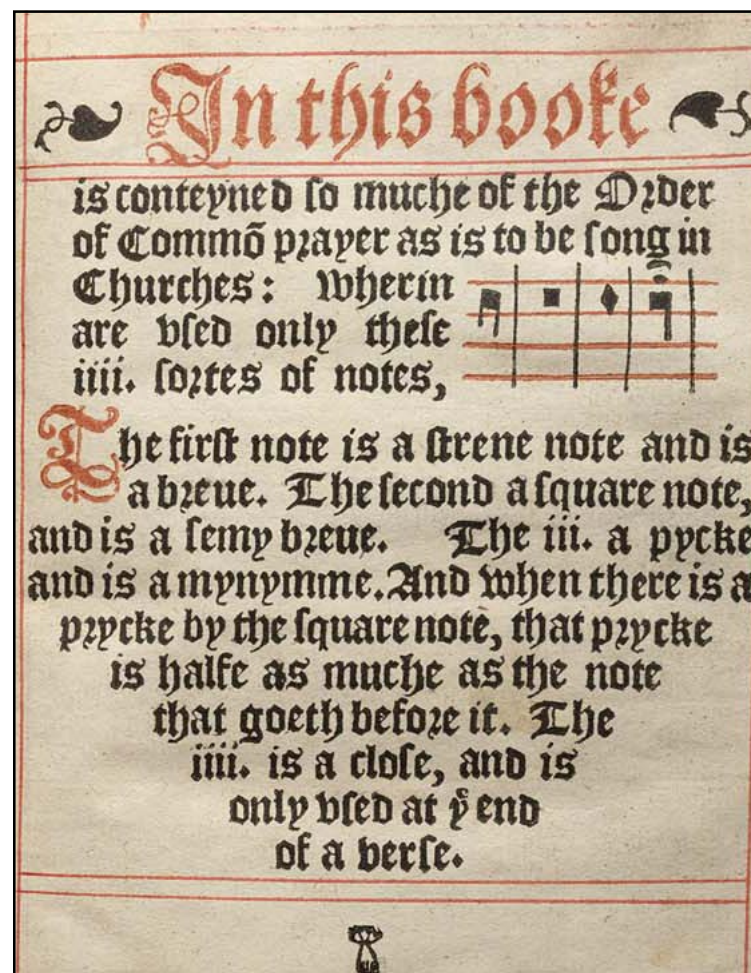 In this booke
is conteyned so muche of the Order
of Commō prayer as is to be song in
Churches: wherin
are vsed only these
iiii. sortes of notes,
The first note is a strene note and is
a breue. The second a square note,
and is a semy breue. The iii. a pycke
and is a mynymme. And when there is a
prycke by the square note, that prycke
is halfe as muche as the note
that goeth before it. The
iiii. is a close, and is
only vsed at yͤ end
of a verse.